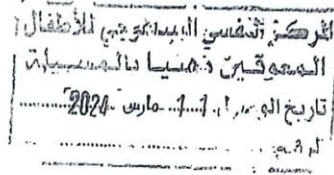 المركز النفسي البيداغوجي للأطفال
المعوقين ذهنيا بالمسيلة
تاريخ الو... 11 مارس 2024